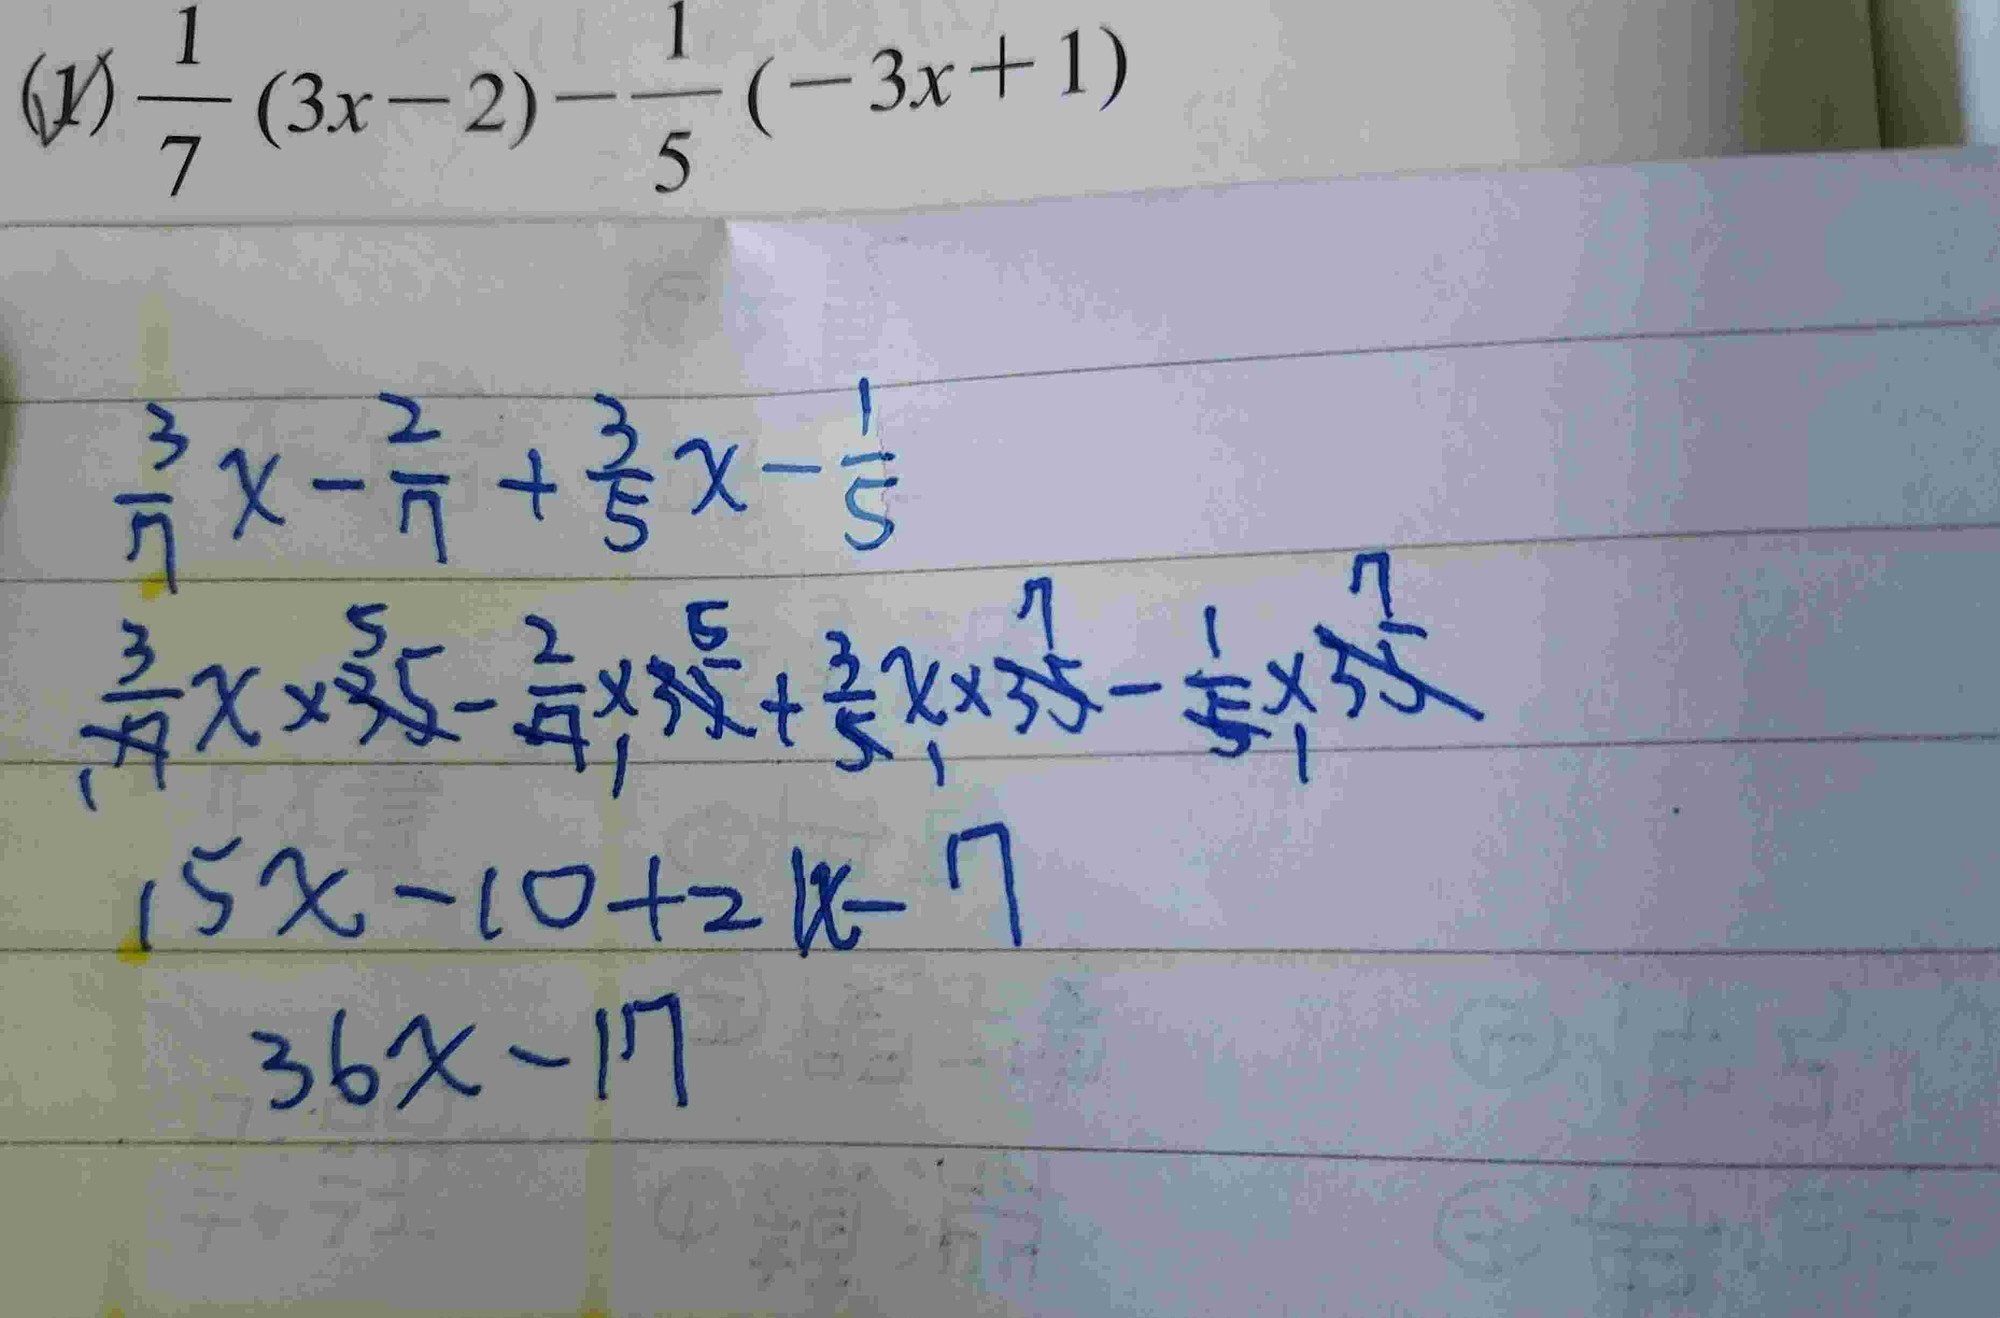 (1) 1/7 (3x-2) - 1/5 (-3x+1)
3/7 x - 2/7 + 3/5 x - 1/5
3/7 x × 35 5 1 - 2/7 × 35 5 1 + 3/5 x × 35 7 1 - 1/5 × 35 7 1
15x - 10 + 21x - 7
36x - 17